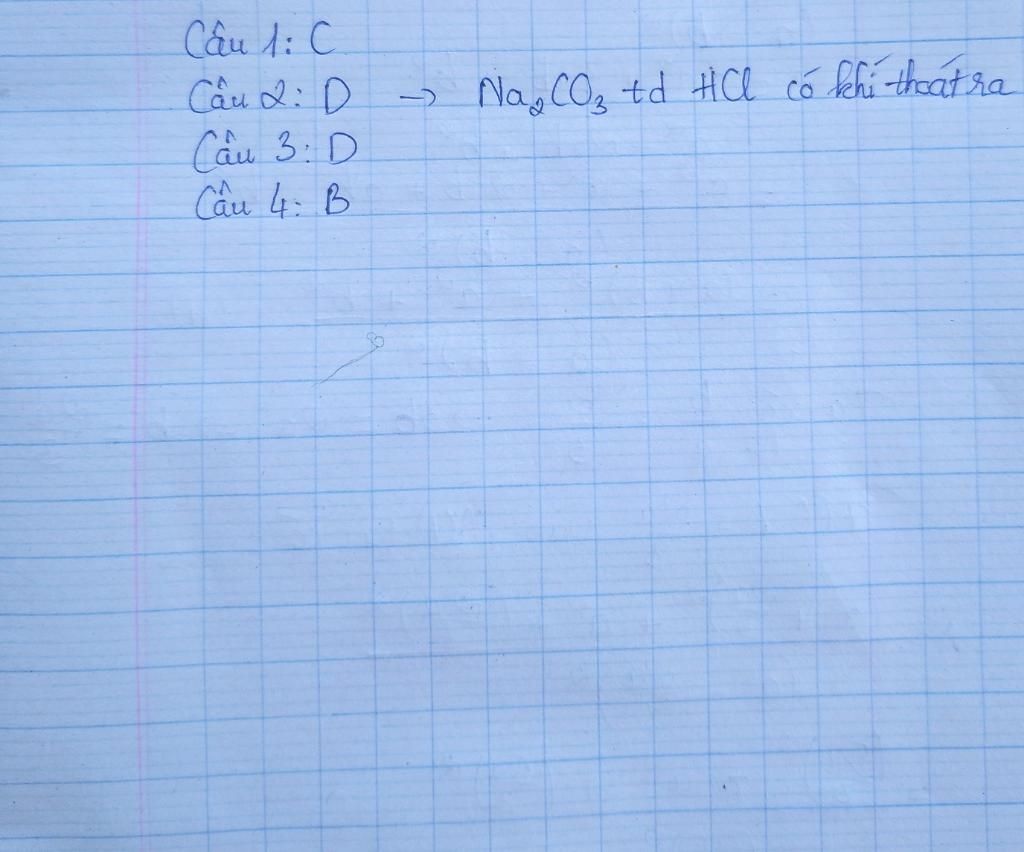 Câu 1: C
Câu 2: D → Na₂CO₃ td HCl có khí thoát ra
Câu 3: D
Câu 4: B